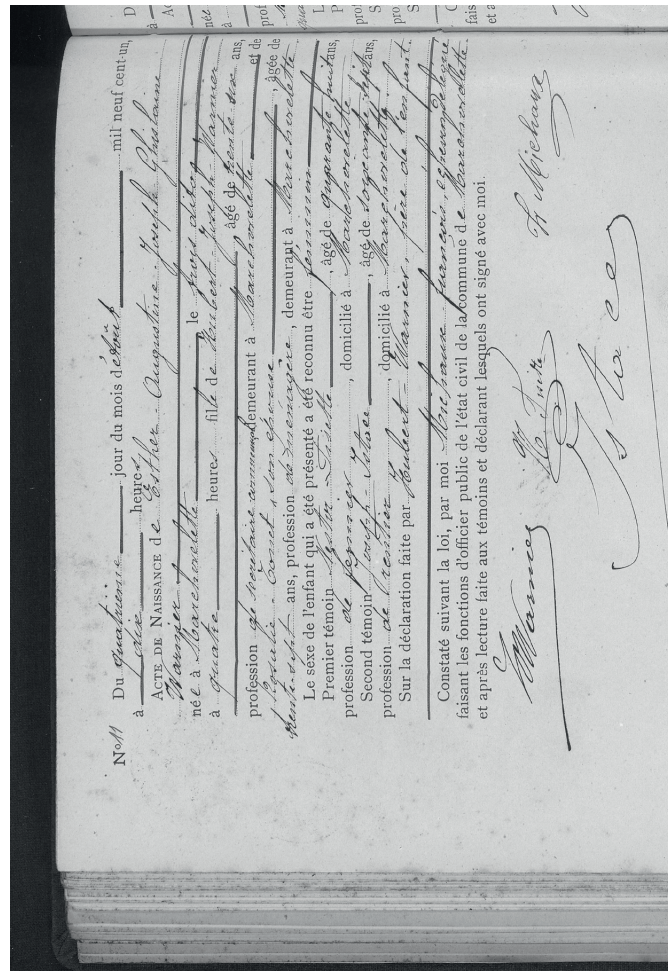 N° 11 Du quatrième jour du mois d'août mil neuf cent-un,
à dix heures
ACTE DE NAISSANCE de Esther-Augustine-Joseph Ghislaine
Warnier
née à Marchovelette le trois dito à
à quatre heures fille de Hubert Joseph Warnier
âgé de trente six ans,
profession de secrétaire communal demeurant à Marchovelette et de
son épouse, âgée de
trente-sept ans, profession de ménagère, demeurant à Marchovelette.
Le sexe de l'enfant qui a été présenté a été reconnu être féminin
Premier témoin, âgé de quarante huit ans,
profession de fermier, domicilié à Marchovelette
Second témoin Joseph, âgé de soixante sept ans,
profession de rentier, domicilié à Marchovelette
Sur la déclaration faite par Hubert Warnier, père de l'enfant.
Constaté suivant la loi, par moi Michaux, échevin délégué
faisant les fonctions d'officier public de l'état civil de la commune de Marchovelette
et après lecture faite aux témoins et déclarant lesquels ont signé avec moi.
Warnier
Michaux